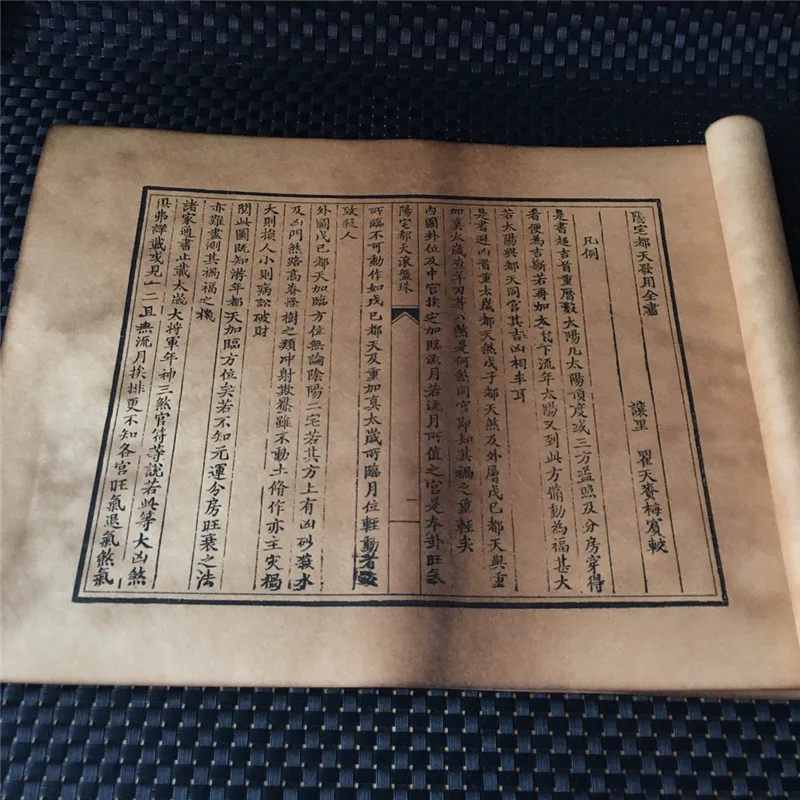 陰宅都天發用全書
讓里 瞿天賚梅賓較
凡例
是書趨吉首重曆數太陽凡太陽頂度或三方盃照及分房穿得
看便為吉斷若再加太下流年太陽又到此方脩動為福甚大
若太陽與都天同宮其吉凶相半耳
是書避凶首重太歲都天煞戊子都天煞及外層戊己都天與重
如真太歲等刃其八煞是何煞同宮即知其禍之重輕矣
內圖卦位及中宮挨定加臨流月若流月所值之宮是本卦旺氣
陽宅都天滾盤珠
一
所臨不可動作如戊己都天及重加真太歲所臨月位輕動者
致殺人
外圖戊己都天加臨方位無論陰陽二宅若其方上有凶砂惡水
及凶門煞路高脊怪樹之類冲射欺壓雖不動土脩作亦主灾禍
大則損人小則病訟破財
閱此圖既知將年都天加臨方位矣若不知元運分房旺衰之法
亦難盡測其禍福之機
諸家通書止載太歲大將軍年神三煞官符等說若此等大凶煞
俱弗詳載或見一二且無流月挨排更不知各宮旺氣退氣煞氣